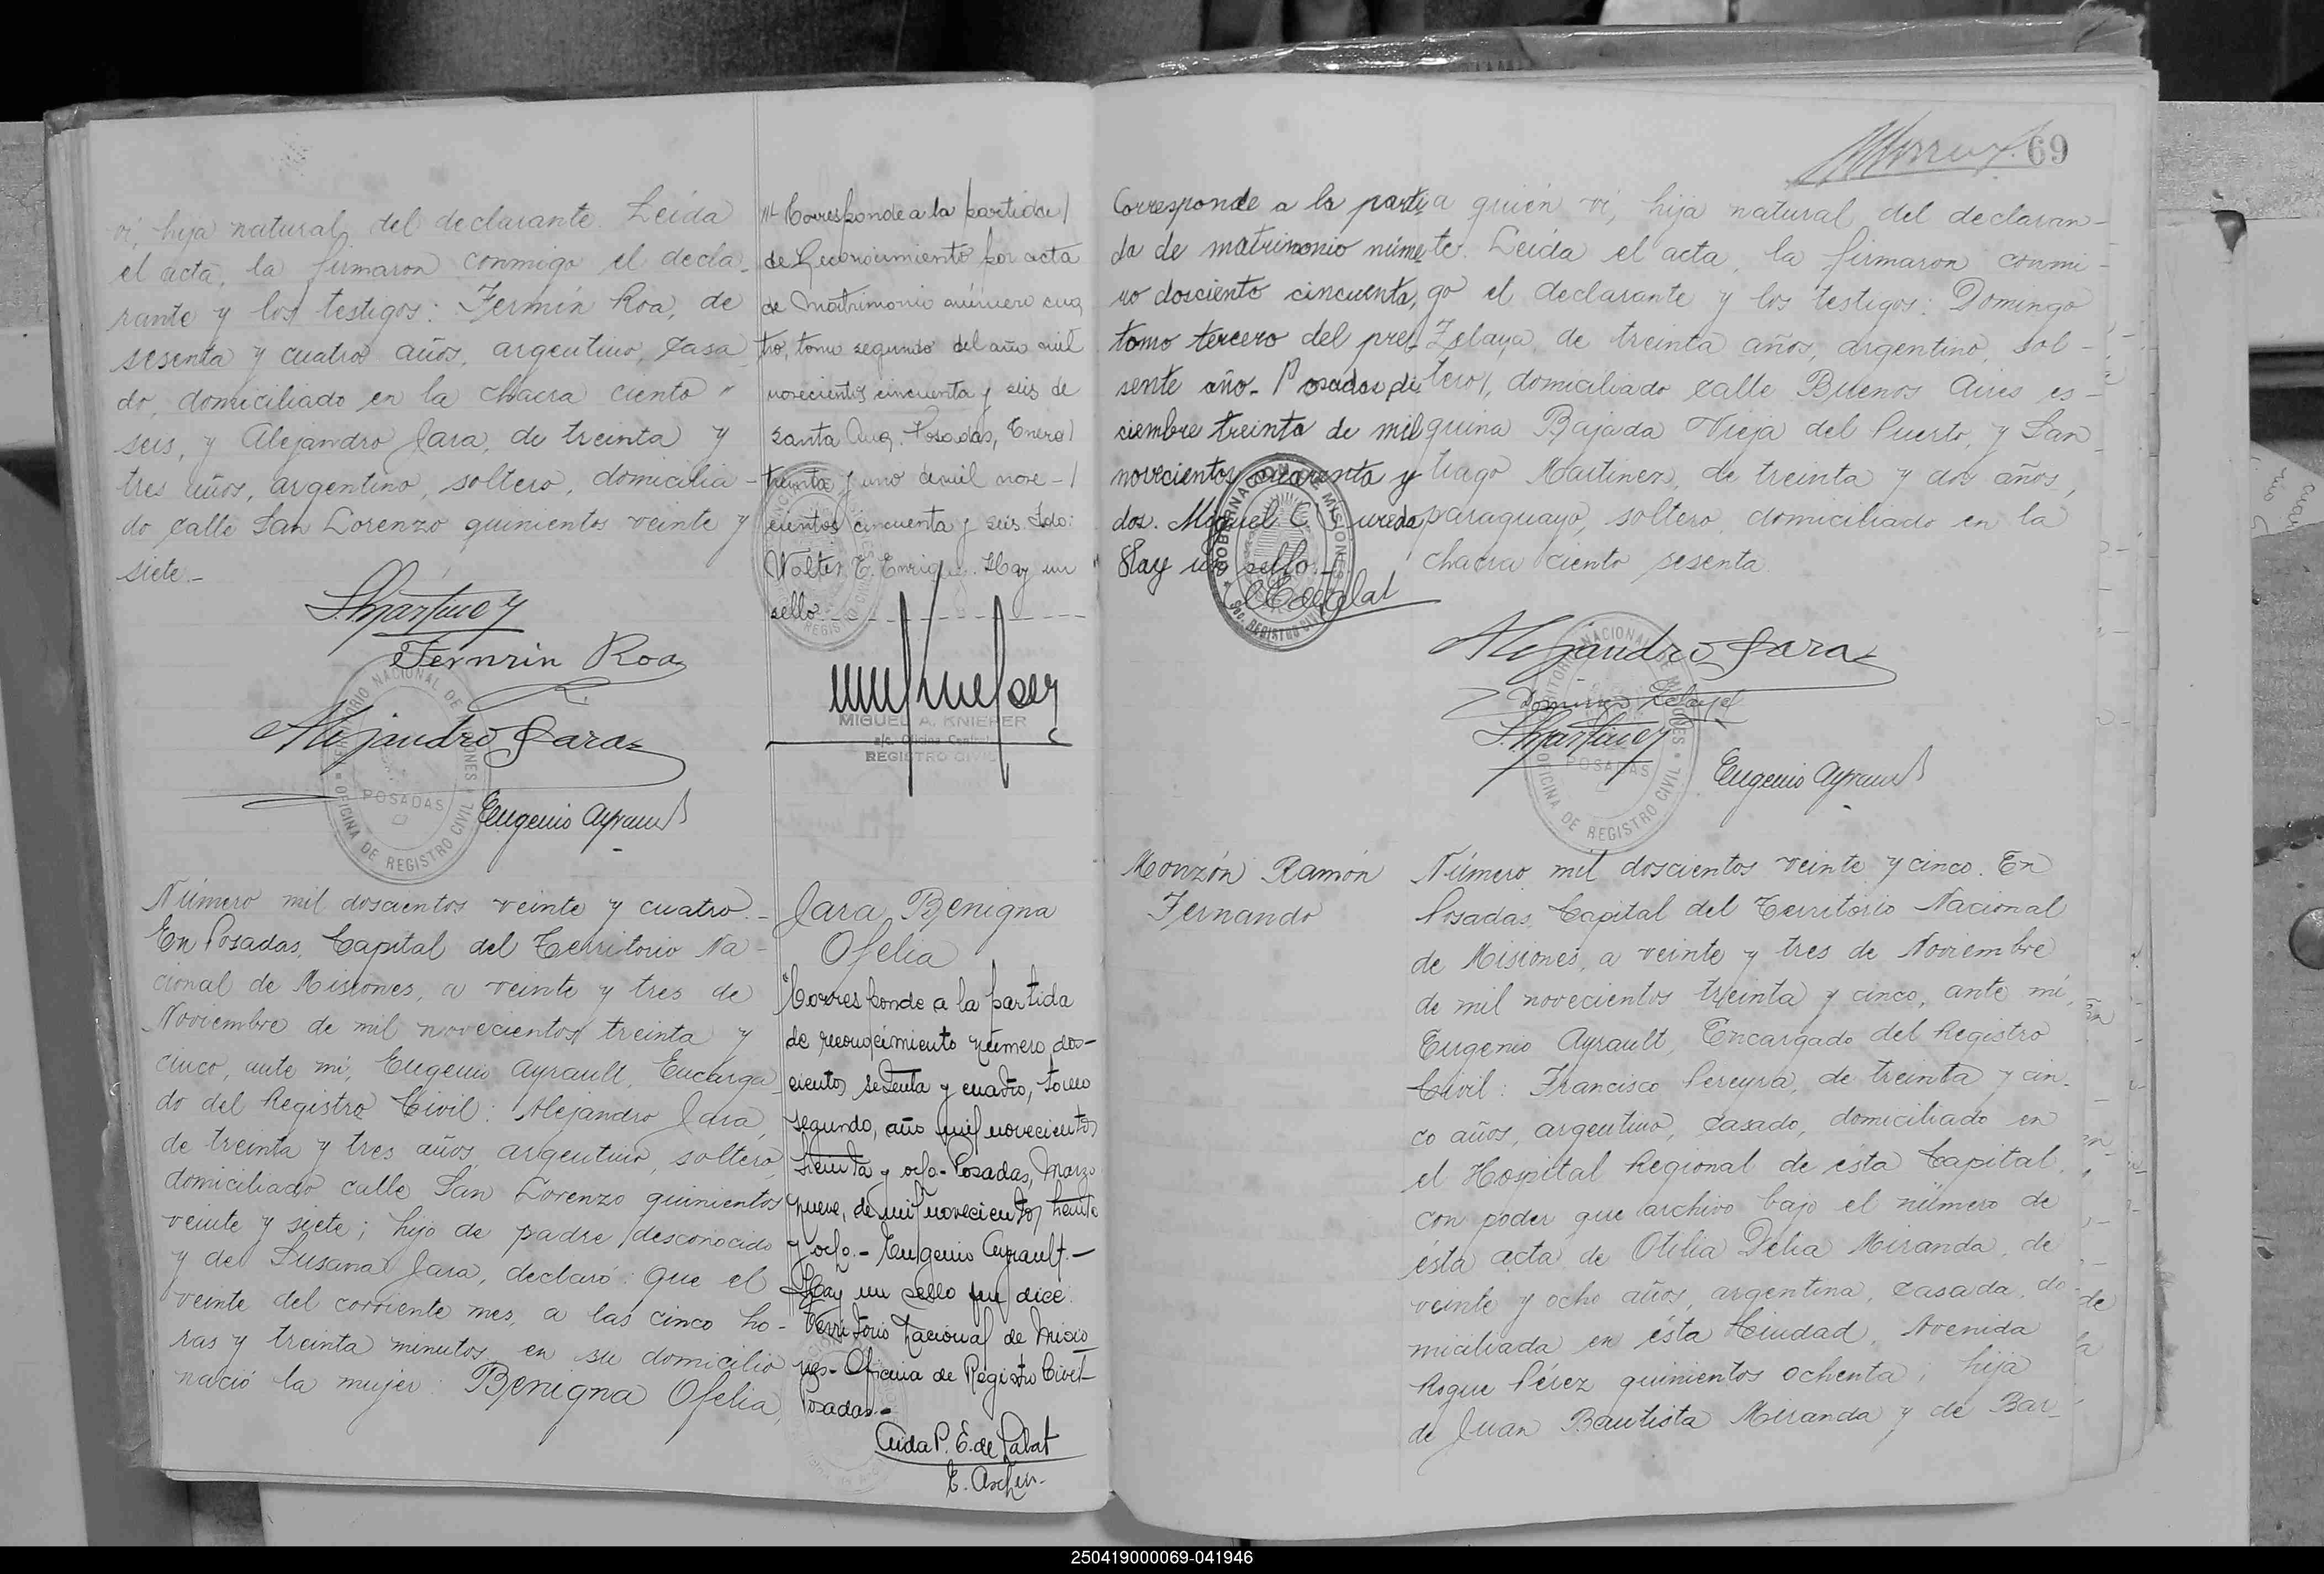 vi, hija natural del declarante. Leída
el acta, la firmaron conmigo el decla-
rante y los testigos: Fermín Roa, de
sesenta y cuatro años, argentino, casa
do, domiciliado en la chacra ciento "
seis, y Alejandro Jara, de treinta y
tres años, argentino, soltero, domicilia-
do calle San Lorenzo quinientos veinte y
siete.-
S. Martinez
Fermin Roa
Alejandro Jara
Eugenio Ayrault
TERRITORIO NACIONAL DE MISIONES
POSADAS
OFICINA DE REGISTRO CIVIL
Corresponde a la partida
de Reconocimiento por acta
de Matrimonio número cua
tro, tomo segundo del año mil
novecientos cincuenta y seis de
Santa Ana. Posadas, Enero
treinta y uno de mil nove-
cientos cincuenta y seis. Fdo:
Walter E. Enriquez. Hay un
sello
MIGUEL A. KNIEPER
a/c. Oficina Central
REGISTRO CIVIL
Número mil doscientos veinte y cuatro.-
En Posadas, Capital del Territorio Na-
cional de Misiones, a veinte y tres de
Noviembre de mil novecientos treinta y
cinco, ante mí, Eugenio Ayrault, Encarga
do del Registro Civil: Alejandro Jara,
de treinta y tres años, argentino, soltero,
domiciliado calle San Lorenzo quinientos
veinte y siete; hijo de padre desconocido
y de Susana Jara, declaró: Que el
veinte del corriente mes, a las cinco ho-
ras y treinta minutos, en su domicilio
nació la mujer: Benigna Ofelia,
Jara Benigna
Ofelia
"Corresponde a la partida
de reconocimiento número dos-
cientos setenta y cuatro, tomo
segundo, año mil novecientos
treinta y ocho- Posadas, Marzo
nueve, de mil novecientos treinta
y ocho.- Eugenio Ayrault.-
Hay un sello que dice:
Territorio Nacional de Misio
nes- Oficina de Registro Civil-
Posadas.-
69
Corresponde a la parti
da de matrimonio núme
ro dosciento cincuenta,
tomo tercero del pre
sente año.- Posadas di
ciembre treinta de mil
novecientos cuarenta y
dos. Miguel C.
Hay un sello.-
GOBERNACION DE MISIONES
REGISTRO CIVIL
a quién vi, hija natural del declaran-
te. Leída el acta, la firmaron conmi-
go el declarante y los testigos: Domingo
Zelaya, de treinta años, argentino, sol-
tero, domiciliado calle Buenos Aires es-
quina Bajada Vieja del Puerto, y San
tiago Martinez, de treinta y dos años,
paraguayo, soltero, domiciliado en la
chacra ciento sesenta.
Alejandro Jara
Domingo Zelaya
S. Martinez
Eugenio Ayrault
TERRITORIO NACIONAL DE MISIONES
POSADAS
OFICINA DE REGISTRO CIVIL
Monzón Ramón
Fernando
Número mil doscientos veinte y cinco. En
Posadas, Capital del Territorio Nacional
de Misiones, a veinte y tres de Noviembre
de mil novecientos treinta y cinco, ante mí,
Eugenio Ayrault, Encargado del Registro
Civil: Francisco Pereyra, de treinta y cin-
co años, argentino, casado, domiciliado en
el Hospital Regional de ésta Capital,
con poder que archivo bajo el número de
ésta acta de Otilia Delia Miranda, de
veinte y ocho años, argentina, casada, do-
miciliada en ésta Ciudad, Avenida
Roque Pérez quinientos ochenta; hija
de Juan Bautista Miranda y de Bar-
250419000069-041946